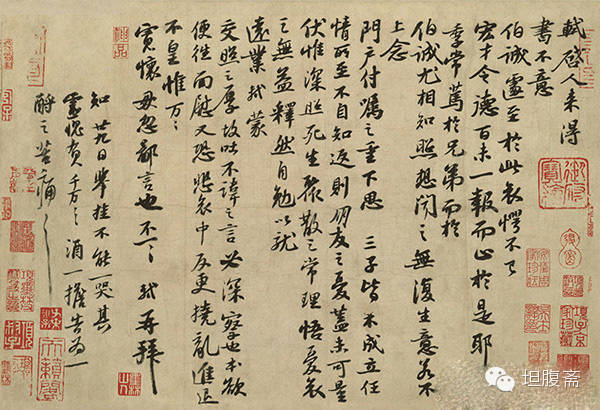 軾啓人来得
書不意
伯誠遽至於此哀愕不已
宏才令德百未一報而止於是耶
季常篤於兄弟而於
伯誠尤相知照想聞之無復生意若不
上念
門户付囑之重下思三子皆不成立任
情所至不自知返則朋友之憂蓋未可量
伏惟深照死生聚散之常理悟憂哀
之無益釋然自勉以就
遠業軾蒙
交照之厚故吐不諱之言必深察也本欲
便往面慰又恐悲哀中反更撓亂進退
不皇惟万〻
寬懷毋忽鄙言也不一〻軾再拜
知廿九日舉挂不能一哭其
靈愧負千万〻〻酒一擔告為一
酹之苦痛〻〻
坦腹斋